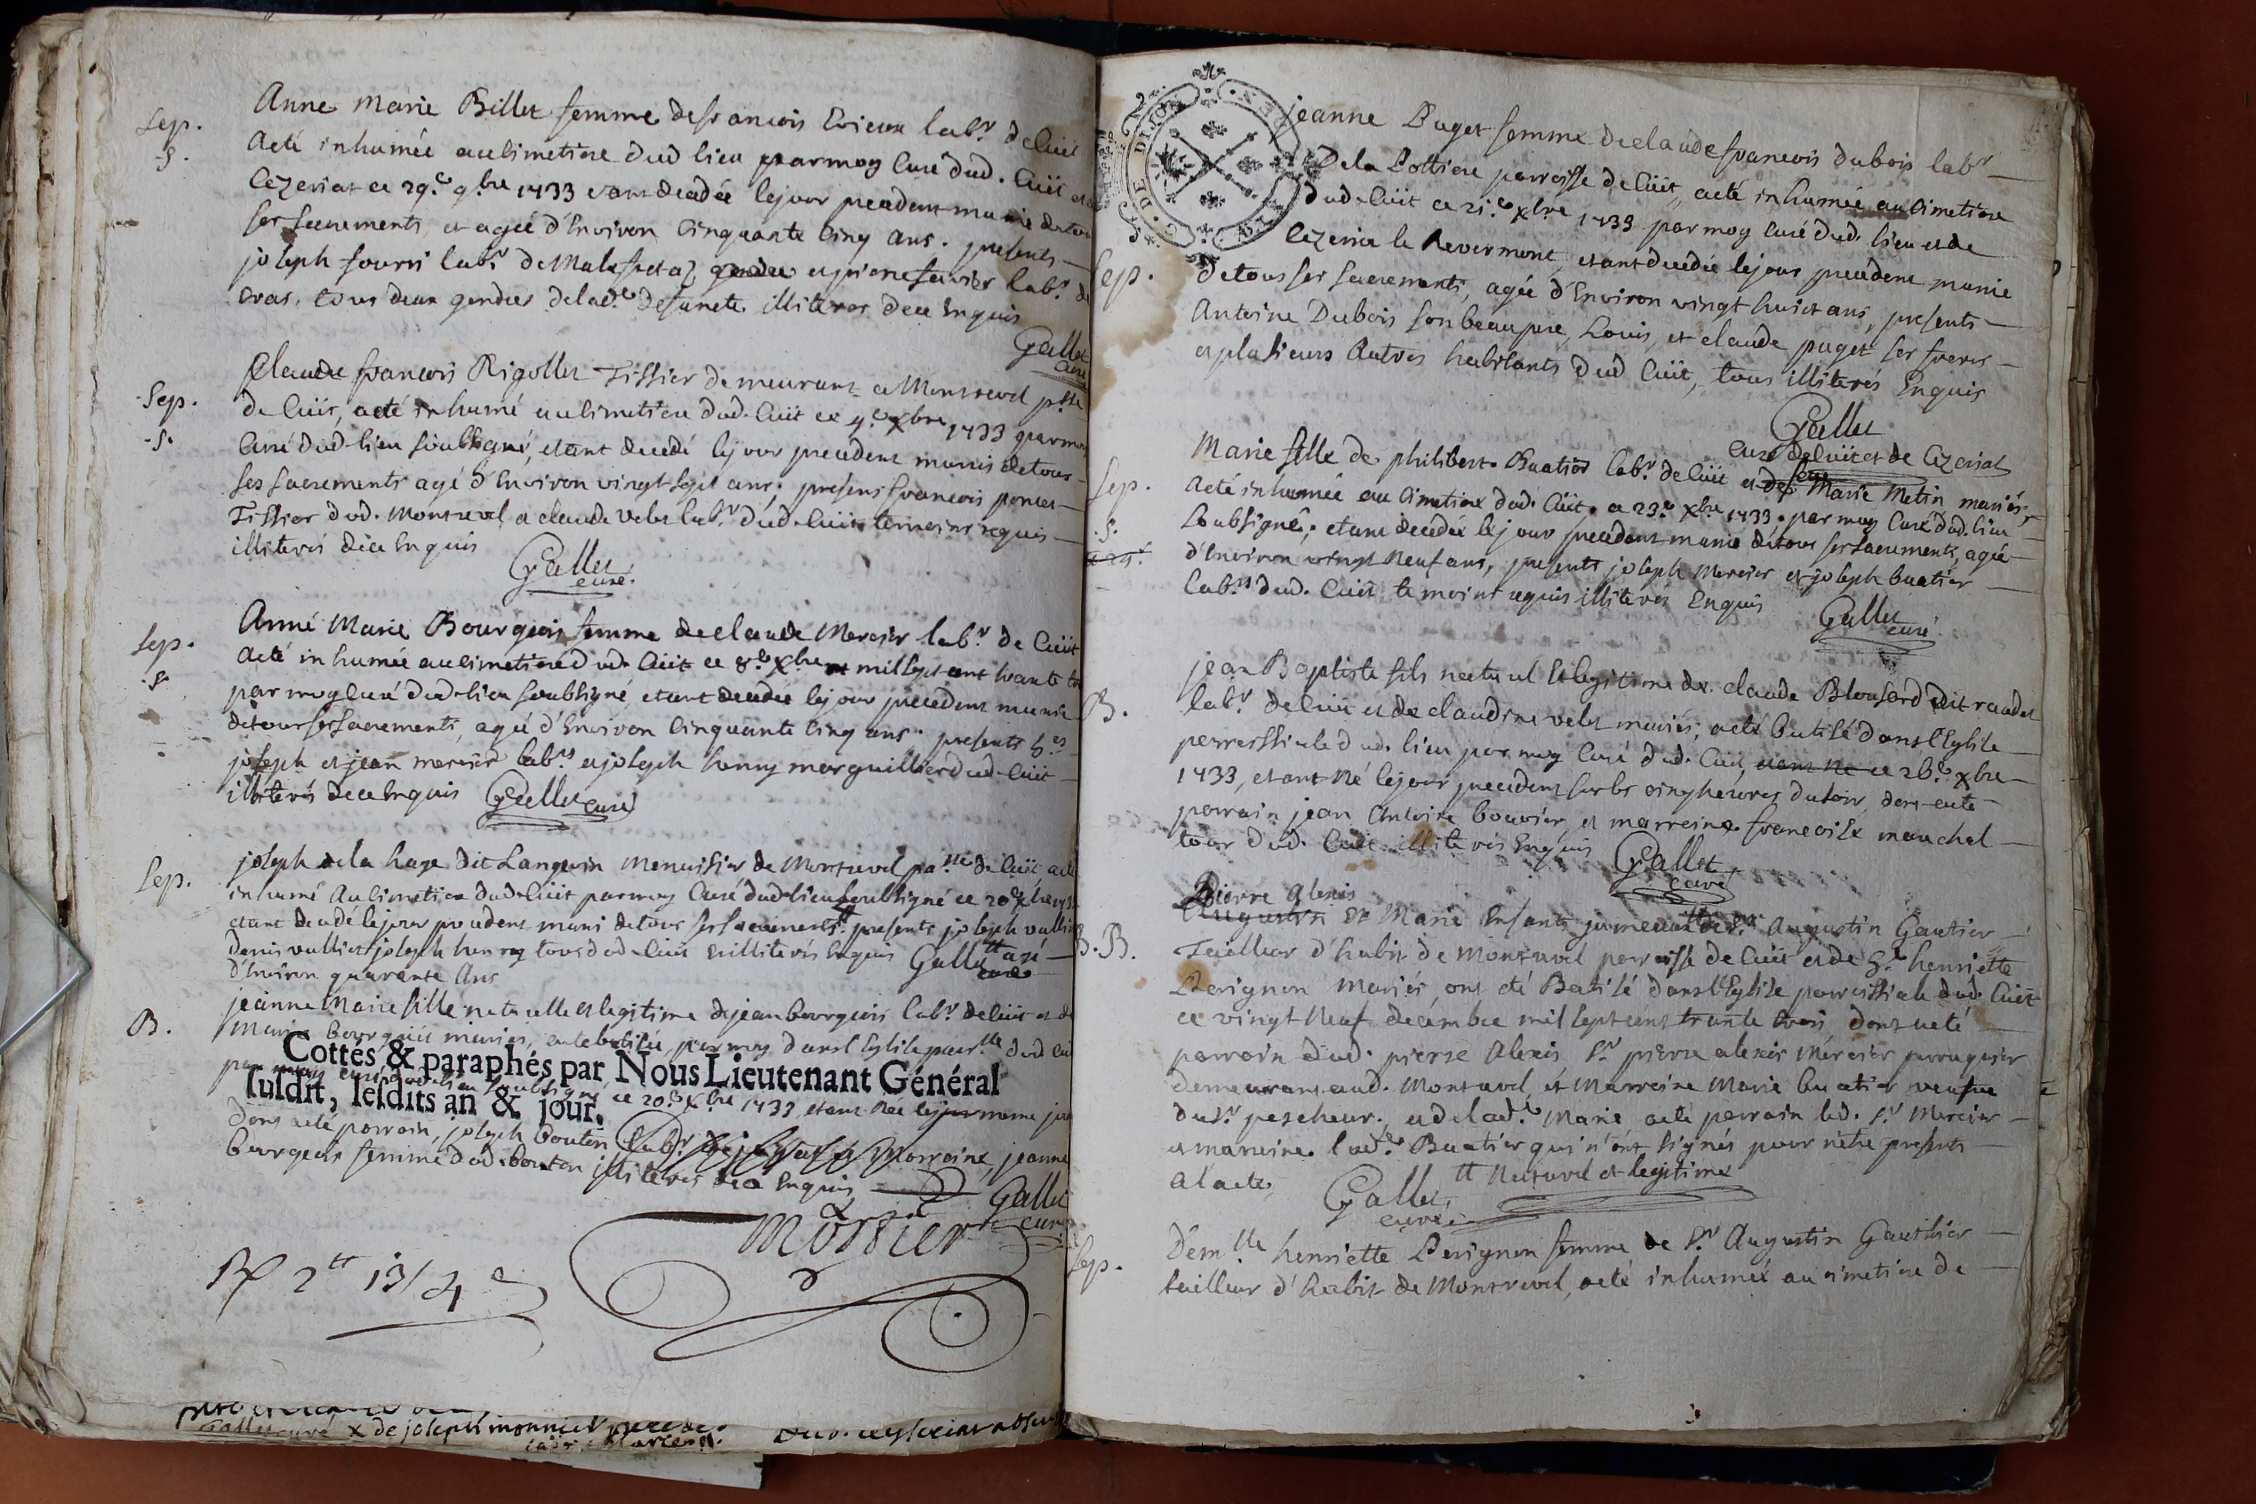 Sep.
.S.
Anne Marie Billet femme de francois Erieux labr de Cuit
a eté inhumée au cimetiere dud lieu par moy Curé dud. Cuit et de
Cezeriat ce 29.e 9.bre 1733 etant decedée le jour precedent munie de tous
ses sacrements, et agée d'Environ Cinquante Cinq ans. presents
joseph fourri labr de Malafretaz et pierre fevrier labr de
cras, tous deux gendres de lad.e defuncte illiteres de ce Enquis
Gallet
curé
Sep.
.S.
Claude francois Rigollet Tissier demeurant a Montrevel psse
de Cuit, a eté inhumé au cimetiere dud. Cuit ce 4.e Xbre 1733 par moy
Curé dud lieu soubsigné, etant decedé le jour precedent munis de tous
ses sacrements agé d'Environ vingt sept ans; presens francois poncet
Tissier dud. Montrevel et claude Velet labr dud. Cuit temoins requis
illiterés de ce Enquis
Gallet
curé.
Sep.
.S.
Anne Marie Bourgeois femme de claude Mercier labr de Cuit
a eté inhumée au cimetiere dud. Cuit ce 8.e Xbre mil sept cent trante
par moy curé dud. lieu soubsigné etant decedée le jour precedent munie
de tous ses sacrements, agée d'Environ Cinquante Cinq ans. presents
joseph et jean mercier labrs et joseph henry marguillier dud. Cuit
illiterés de ce Enquis Gallet curé
Sep.
joseph de la haye dit Langevin Menuisier de Montrevel pa.sse de Cuit, a eté
inhumé au cimetiere dud Cuit par moy Curé dud lieu soubsigné ce 20.e Xbre
etant decedé le jour precedent muni de tous ses sacrements tt presents joseph vullin
denis vullin et joseph henry tous dud Cuit illiterés Enquis Gallet tt agé
d'Environ quarante Ans curé
B.
jeanne Marie fille naturelle et legitime de jean bourgeois labr de Cuit et de
Marie bourgeois mariés, a eté batisée, par moy dans l'Eglise parr.lle dud Cuit
Cottés & paraphés par Nous Lieutenant Général
par moy curé dud lieu soubsigné ce 20.e Xbre 1733 etant née le jour meme
susdit, lesdits an & jour.
Dont a eté parrain, joseph bouton labr et Marraine, jeanne
bourgeois femme dud. bouton illiterés de ce Enquis
Gallet
curé
R 2 tt 13 s 4 d
Gallet curé x de joseph monnier
C. DE DIJON
GEN.
Sep.
jeanne Puget femme de claude francois dubois labr
De la Pottiere parroisse de Cuit, a eté inhumée au cimetiere
dud. Cuit ce 21.e Xbre 1733 par moy curé dud. lieu et de
Cezeria le Revermont, etant decedée le jour precedent munie
de tous ses sacrements, agée d'Environ vingt huict ans, presents
Antoine Dubois son beaupere, Louis, et claude puget ses freres
et plusieurs Autres habitants dud Cuit, tous illiterés Enquis
Gallet
curé de Cuit et de Cezeriat
Sep.
.S.
Marie fille de philibert Buatier labr de Cuit et de feue Marie Metin mariés,
a eté inhumée au Cimetiere dud. Cuit. ce 23.e Xbre 1733. par moy Curé dud. lieu
soubsigné; etant decedée le jour precedent munie de tous ses sacrements, agée
d'Environ vingt Neuf ans, presents joseph Mercier et joseph buatier
labrs dud. Cuit temoins requis illiterés Enquis
Gallet
curé
B.
jean Baptiste fils naturel et legitime de claude Blonsard dit raudet
labr de Cuit et de claudine velet mariés, a eté batisé dans l'Eglise
parroissiale dud. lieu par moy Curé dud. Cuit, etant Né ce 26.e Xbre
1733, etant Né le jour precedent sur les cinq heures du soir, dont a eté
parrain jean Antoine bouvier et marreine francoise manchel
tous dud. Cuit illiterés Enquis
Gallet
curé
B.B.
Pierre Alexis
Augustin Et Marie Enfants jumeaux tt de Sr. Augustin Gautier
Tailleur d'habit de Montrevel parroisse de Cuit et de henriette
Perignon Mariés, ont eté Batisé dans l'Eglise parroissiale dud. Cuit
ce vingt Neuf decembre mil sept cent trante trois dont a eté
parrain dud. pierre Alexis Sr pierre alexis Mercier perruquier
demeurant aud. Montrevel, et Marreine Marie buatier veufve
du Sr pescheur, et de lad.e Marie a eté parrain led. Sr Mercier
et marreine lad.e Buatier qui n'ont signés pour n'etre presents
a l'acte,
tt Naturel et legitime
Gallet
curé
Sep.
Dem.lle henriette Perignon femme de Sr Augustin Gauthier
tailleur d'habit de Montrevel, a eté inhumée au cimetiere de